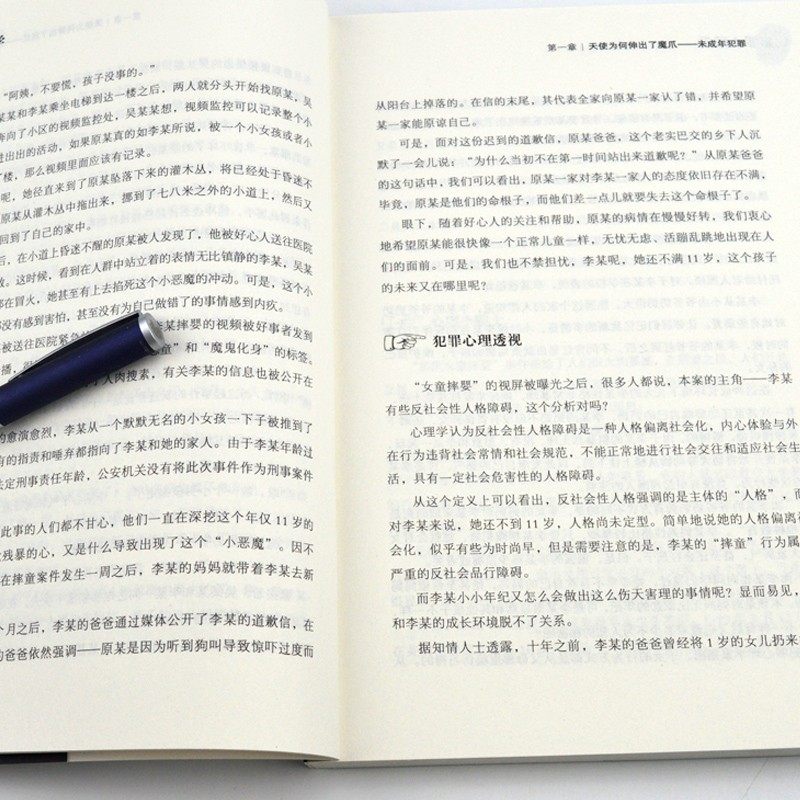 “阿姨，不要慌，孩子没事的。”
某某和李某乘坐电梯到达一楼之后，两人就分头开始找原某，吴
奔向了小区的视频监控处，吴某某想，视频监控可以记录整个小
进出出的活动，如果原某真的如李某所说，被一个小女孩或者小
走，那么视频里面应该有记录。
呢，她径直来到了原某坠落下来的灌木丛，将已经处于昏迷不
原某从灌木丛中拖出来，挪到了七八米之外的小道上，然后又
回到了自己的家中。
后，在小道上昏迷不醒的原某被人发现了，他被好心人送往医院
。这时候，看到在人群中站立着的表情无比镇静的李某，吴某
都在冒火，她甚至有上去掐死这个小恶魔的冲动。可是，这个小
没有感到害怕，甚至没有为自己做错了的事情感到内疚。
某被送往医院紧急
李某摔婴的视频被好事者发到
播，
童”和“魔鬼化身”的标签。
人肉搜素，有关李某的信息也被公开在
的愈演愈烈，李某从一个默默无名的小女孩一下子被推到了
有的指责和唾弃都指向了李某和她的家人。由于李某年龄过
法定刑事责任年龄，公安机关没有将此次事件作为刑事案件
此事的人们都不甘心，他们一直在深挖这个年仅 11 岁的
残暴的心，又是什么导致出现了这个“小恶魔”。因不
在摔童案件发生一周之后，李某的妈妈就带着李某去新
个月之后，李某的爸爸通过媒体公开了李某的道歉信，在
的爸爸依然强调——原某是因为听到狗叫导致惊吓过度而
第一章 | 天使为何伸出了魔爪——未成年犯罪
从阳台上掉落的。在信的末尾，其代表全家向原某一家认了错，并希望原
某一家能原谅自己。
可是，面对这份迟到的道歉信，原某爸爸，这个老实巴交的乡下人沉
默了一会儿说：“为什么当初不在第一时间站出来道歉呢？”从原某爸爸
的这句话中，我们可以看出，原某一家对李某一家人的态度依旧存在不满，
毕竟，原某是他们的命根子，而他们差一点儿就要失去这个命根子了。
眼下，随着好心人的关注和帮助，原某的病情在慢慢好转，我们衷心
地希望原某能很快像一个正常儿童一样，无忧无虑、活蹦乱跳地出现在人
们的面前。可是，我们也不禁担忧，李某呢，她还不满 11 岁，这个孩子
的未来又在哪里呢？
犯罪心理透视
“女童摔婴”的视屏被曝光之后，很多人都说，本案的主角——李某
有些反社会性人格障碍，这个分析对吗？
心理学认为反社会性人格障碍是一种人格偏离社会化，内心体验与外
在行为违背社会常情和社会规范，不能正常地进行社会交往和适应社会生
活，具有一定社会危害性的人格障碍。
从这个定义上可以看出，反社会性人格强调的是主体的“人格”，而
对李某来说，她还不到 11 岁，人格尚未定型。简单地说她的人格偏离
会化，似乎有些为时尚早，但是需要注意的是，李某的“摔童”行为属
严重的反社会品行障碍。
而李某小小年纪又怎么会做出这么伤天害理的事情呢？显而易见，
和李某的成长环境脱不了关系。
据知情人士透露，十年之前，李某的爸爸曾经将 1 岁的女儿扔来